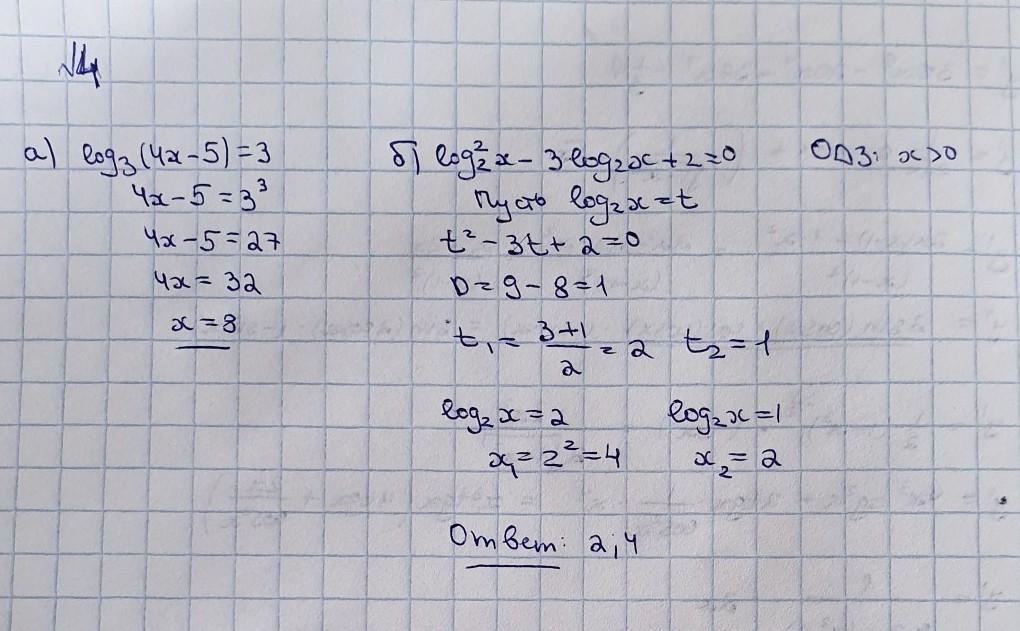 №4
а) log₃(4x-5)=3
4x-5=3³
4x-5=27
4x=32
x=8
б) log₂²x-3·log₂x+2=0 ОДЗ: x>0
Пусть log₂x=t
t²-3t+2=0
D=9-8=1
t₁=(3+1)/2=2 t₂=1
log₂x=2 log₂x=1
x₁=2²=4 x₂=2
Ответ: 2;4